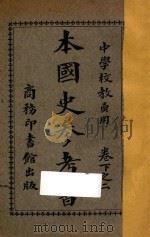 中學校教員用 卷下之二
本國史參考書
商務印書館出版